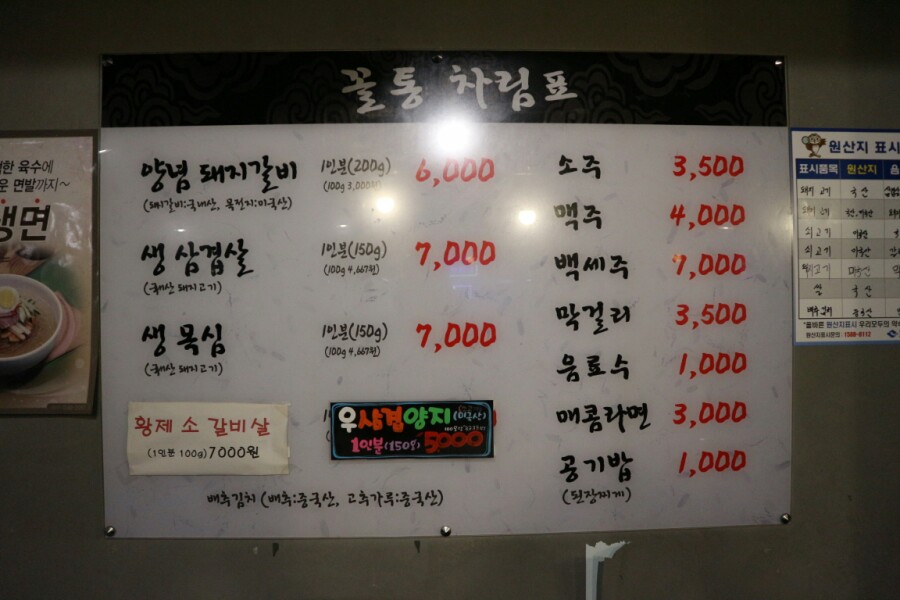 꼴통 차림표
양념 돼지갈비 1인분(200g) 6,000
(100g 3,000원)
(돼지갈비:국내산, 목전지:미국산)
생 삼겹살 1인분(150g) 7,000
(100g 4,667원)
(국내산 돼지고기)
생 목심 1인분(150g) 7,000
(100g 4,667원)
(국내산 돼지고기)
황제 소 갈비살
(1인분 100g) 7000원
우삼겹양지(미국산)
1인분(150g) 5000
배추김치 (배추:중국산, 고추가루:중국산)
소주 3,500
맥주 4,000
백세주 7,000
막걸리 3,500
음료수 1,000
매콤라면 3,000
공기밥 1,000
(된장찌게)
육수에
면발까지~
냉면
원산지 표시
표시품목 원산지
국산
쇠고기
쇠고기
쌀 국산
배추김치
*올바른 원산지표시 우리모두의
원산지표시문의: 1588-8112